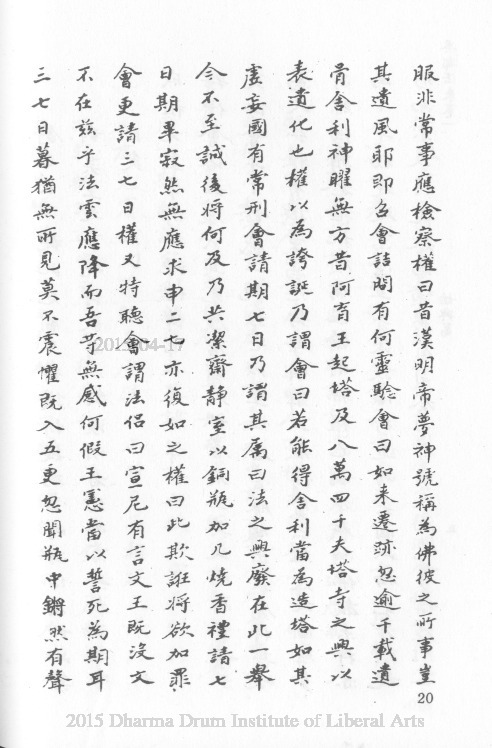 服非常事應檢察權曰昔漢明帝夢神號稱為佛彼之所事豈
其遺風耶即召會詰問有何靈驗會曰如来遷跡忽逾千載遺
骨舍利神曜無方昔阿育王起塔及八萬四千夫塔寺之興以
表遺化也權以為誇誕乃謂會曰若能得舍利當為造塔如其
虛妄國有常刑會請期七日乃謂其属曰法之興廢在此一舉
今不至誠後將何及乃共潔齋静室以銅瓶加几燒香禮請七
日期畢寂然無應求申二七亦復如之權曰此欺誑將欲加罪
會更請三七日權又特聽會謂法侶曰宣尼有言文王既没文
不在兹乎法雲應降而吾等無感何假王憲當以誓死為期耳
三七日暮猶無所見莫不震懼既入五更忽聞瓶中鏘然有聲
20
2015-04-17
2015 Dharma Drum Institute of Liberal Arts